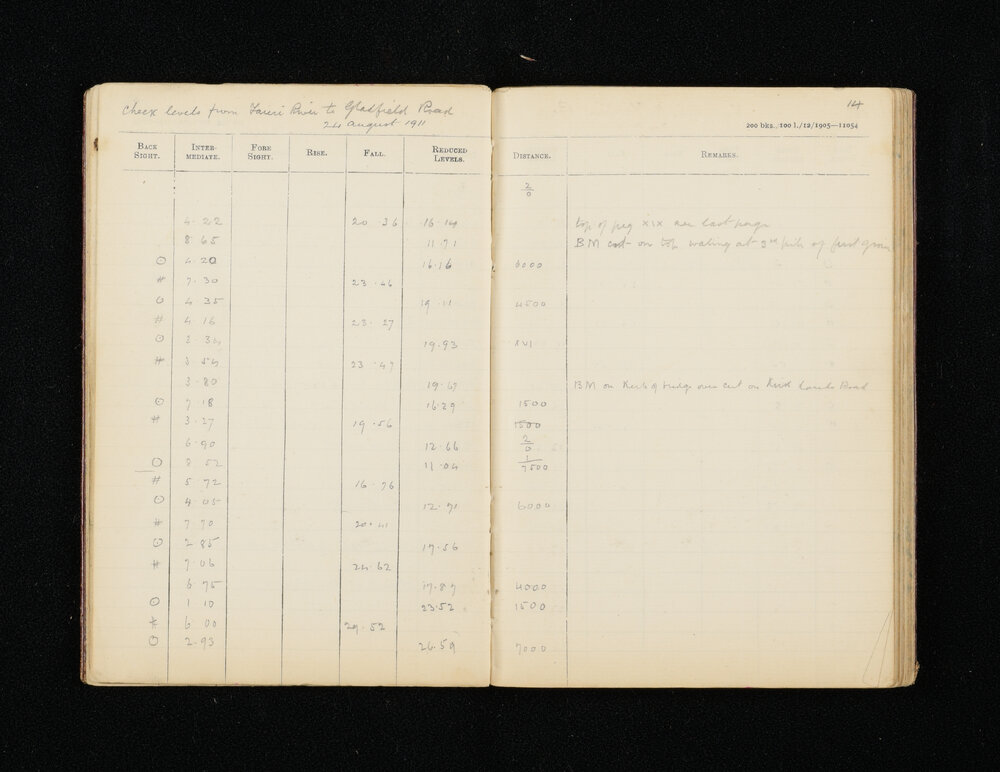 Check levels from Taieri River to Gladfield Road
24 August 1911
14
200 bks./100 l./12/1905—11054
BACK SIGHT. INTER-MEDIATE. FORE SIGHT. RISE. FALL. REDUCED LEVELS. DISTANCE. REMARKS.
2/0
4.22 20.36 16.14 top of peg XIX
8.65 11.71 BM cut on top waling at 3rd pile of first
O 4.20 16.16 6000
# 7.30 23.46
O 4.35 19.11 4500
# 4.16 23.27
O 3.34 19.93
# 3.54 23.47
3.80 19.67 BM on Kerb of bridge over cut on Road
O 7.18 16.29 1500
# 3.27 19.56 1500
6.90 12.66 2/0
O 8.52 11.04 1/7500
# 5.72 16.76
O 4.05 12.71 6000
# 7.70 20.41
O 2.85 17.56
# 7.06 24.62
6.75 17.87 4000
O 1.10 23.52 1500
# 6.00 29.52
O 2.93 26.59 7000